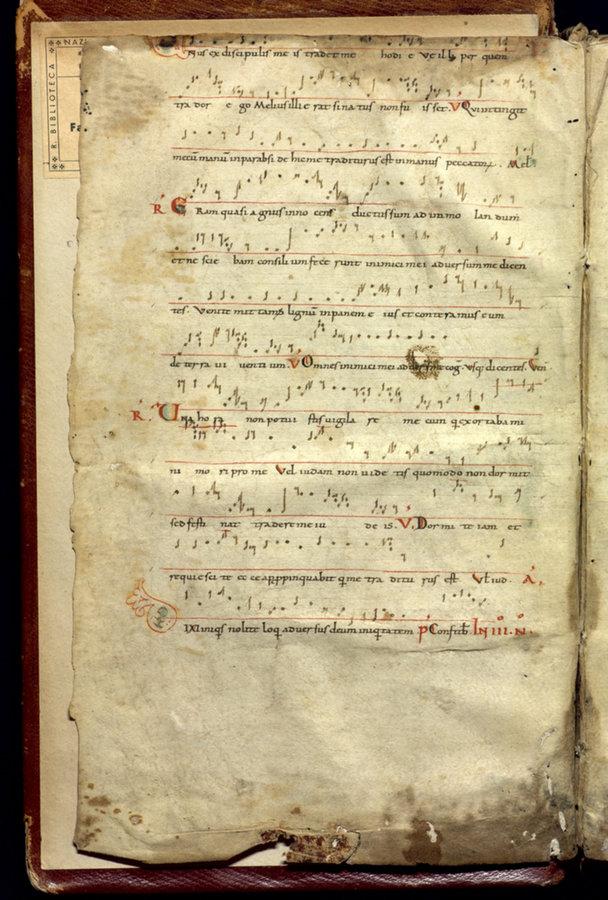 R. BIBLIOTECA NAZ
Fa
Nus ex discipulis me is tradet me hodi e Ve ill p per quem
tra dor e go Melius illi e rat si na tus non fu is set. V Qui intingit
mecū manū in parabsi de hic me traditurus est in manus peccatorꝝ. Mel
R E Ram quasi a gnus inno cens ductus sum ad im mo lan dum
et ne scie bam consili um fece runt inimici mei adversum me dicen
tes. Venite mit tamꝰ lignū in panem e ius et contera mus e um
de ter ra vi venti um. V Omnes inimici mei ad cog. vsq dicentes. Ven
R. U Na ho ra non potui stis vigila re me cum q exor taba mi
ni mo ri pro me Vel iudam non vide tis quomodo non dor mit
sed festi nat tradere me iu de is. V. Dor mi te iam et
requie sci te ec ce appropinquabit q me tra di tu rus est Vel iud. A.
IXI iniqis nolite loq adver sus deum iniqtatem p Confiteb IN III. N.